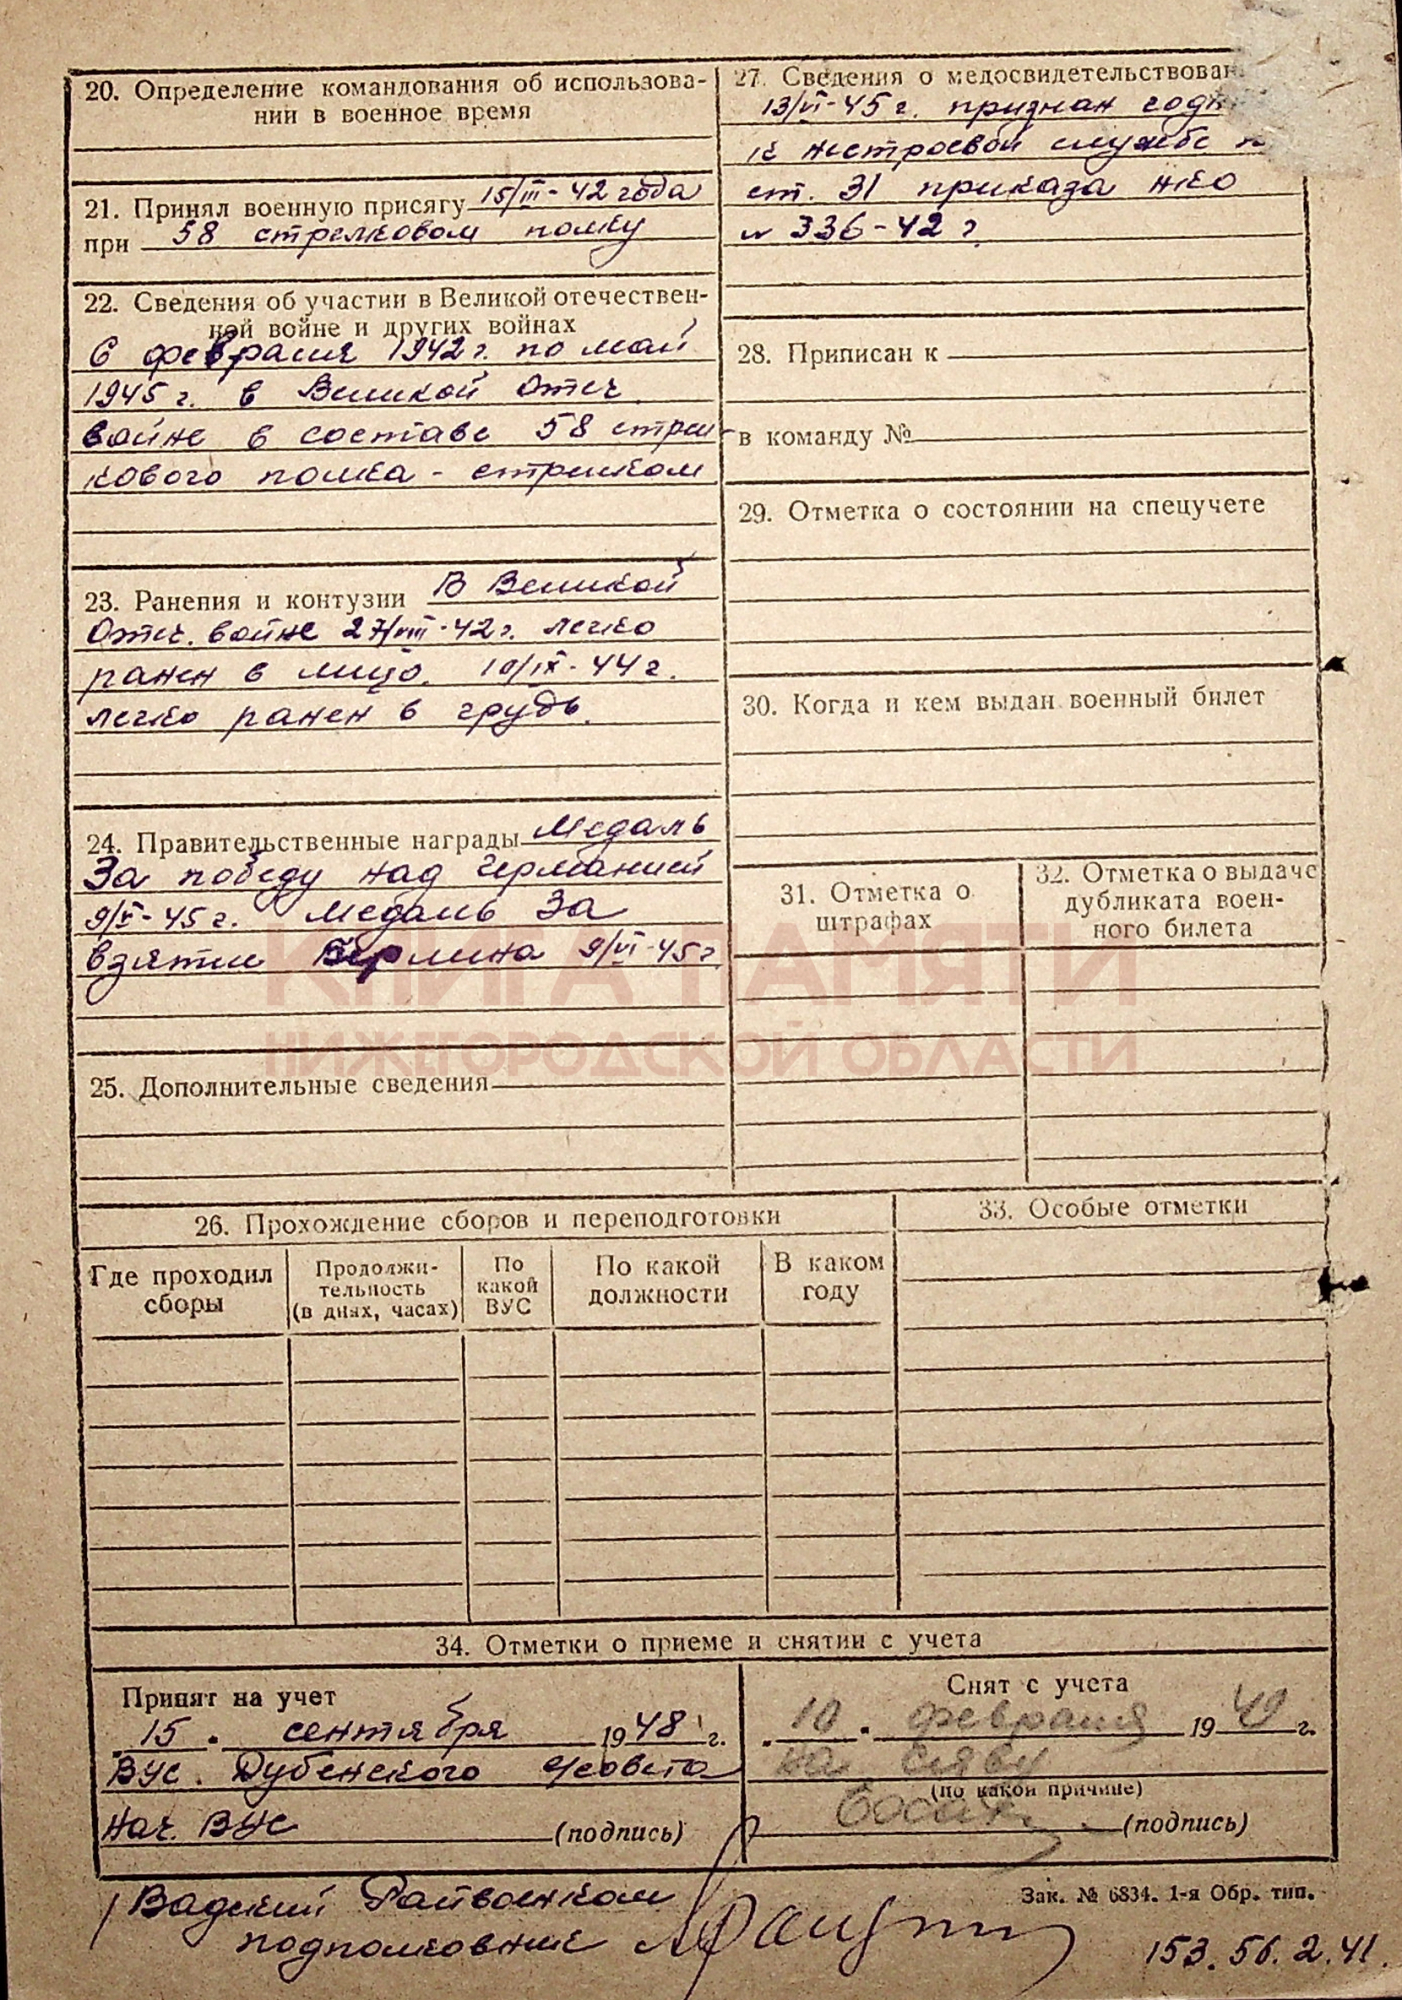 20. Определение командования об использова-
нии в военное время
21. Принял военную присягу 15/III-42 года
при 58 стрелковом полку
22. Сведения об участии в Великой отечествен-
ной войне и других войнах
С февраля 1942 г. по май
1945 г. в Великой Отеч.
войне в составе 58 стрел-
кового полка - стрелком
23. Ранения и контузии В Великой
Отеч. войне 27/VIII-42 г. легко
ранен в лицо. 10/IX-44 г.
легко ранен в грудь.
24. Правительственные награды Медаль
За победу над Германией
9/V-45 г. Медаль За
взятие Берлина 9/VI-45 г
25. Дополнительные сведения
27. Сведения о медосвидетельствован
13/VI-45 г. признан годн
к нестроевой службе п
ст. 31 приказа НКО
№ 336-42 г.
28. Приписан к
в команду №
29. Отметка о состоянии на спецучете
30. Когда и кем выдан военный билет
31. Отметка о
штрафах
32. Отметка о выдаче
дубликата воен-
ного билета
КНИГА ПАМЯТИ
НИЖЕГОРОДСКОЙ ОБЛАСТИ
26. Прохождение сборов и переподготовки
Где проходил
сборы
Продолжи-
тельность
(в днях, часах)
По
какой
ВУС
По какой
должности
В каком
году
33. Особые отметки
34. Отметки о приеме и снятии с учета
Принят на учет
15 сентября 1948 г.
ВУС. Дубенского с/совета
Нач. ВУС (подпись)
Снят с учета
10 февраля 1949 г.
(по какой причине)
(подпись)
Вадский Райвоенком
подполковник
Зак. № 6834. 1-я Обр. тип.
153.56.2.41.